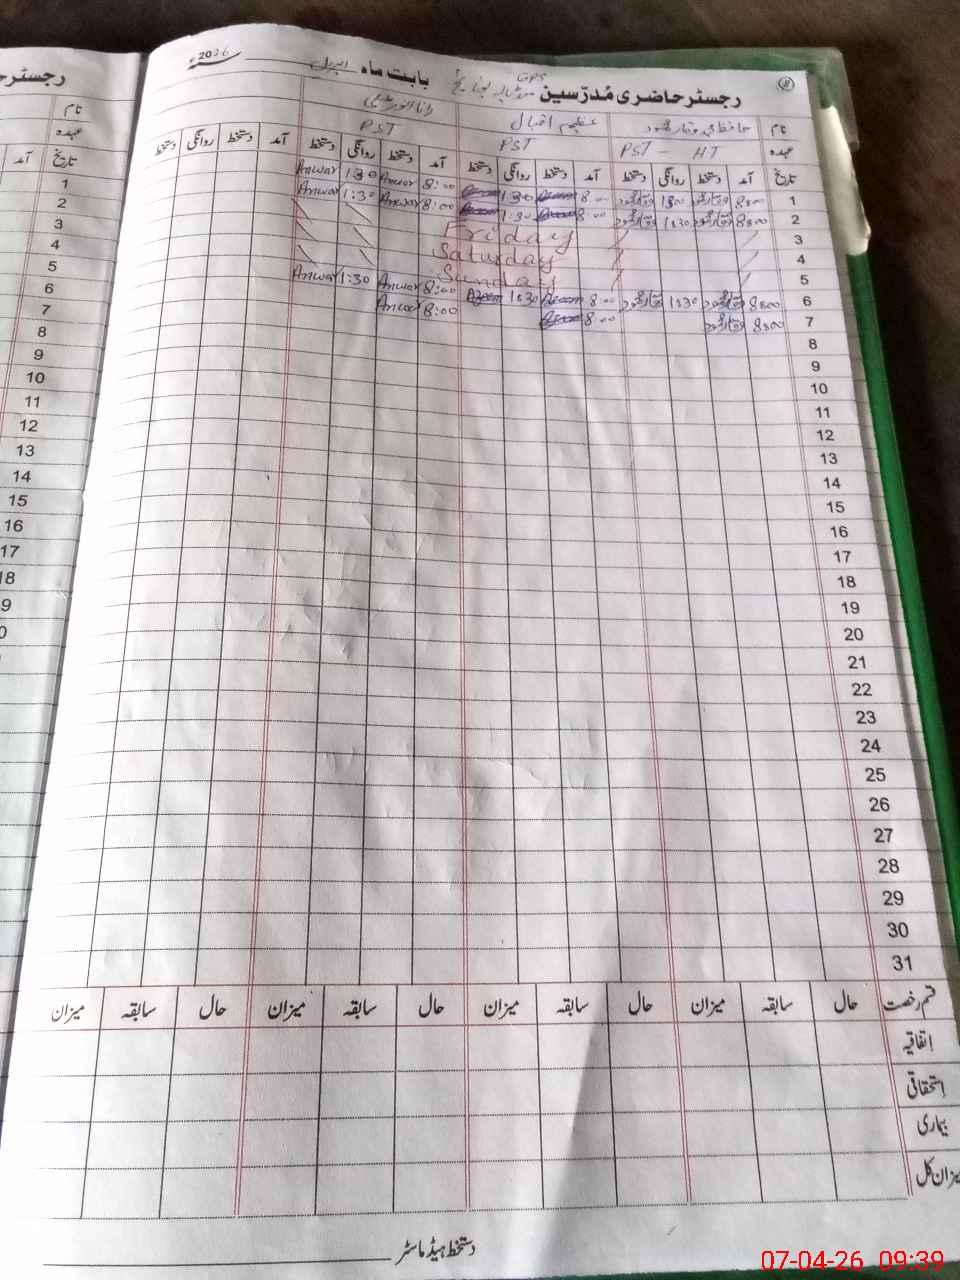 2026ء
رجسٹر حاضری مُدرّسین GPS بابت ماہ اپریل
نام حافظ محمد وقار محمود عظیم اقبال رانا انور علی
عہدہ PST - HT PST PST
تاریخ آمد دستخط روانگی دستخط آمد دستخط روانگی دستخط آمد دستخط روانگی دستخط آمد دستخط روانگی دستخط
1 8:00 وقار محمود 1:30 وقار محمود 8:00 Azeem 1:30 Azeem 8:00 Anwar 1:30 Anwar
2 8:00 وقار محمود 1:30 وقار محمود 8:00 Azeem 1:30 Azeem 8:00 Anwar 1:30 Anwar
3 Friday
4 Saturday
5 Sunday
6 8:00 وقار محمود 1:30 وقار محمود 8:00 Azeem 1:30 Azeem 8:00 Anwar 1:30 Anwar
7 8:00 وقار محمود 8:00 Azeem 8:00 Anwar
8
9
10
11
12
13
14
15
16
17
18
19
20
21
22
23
24
25
26
27
28
29
30
31
قسم رخصت حال سابقہ میزان حال سابقہ میزان حال سابقہ میزان حال سابقہ میزان
اتفاقیہ
استحقاقی
بیماری
میزان کل
دستخط ہیڈ ماسٹر
رجسٹر
نام
عہدہ
تاریخ آمد
1
2
3
4
5
6
7
8
9
10
11
12
13
14
15
16
17
18
07-04-26 09:39